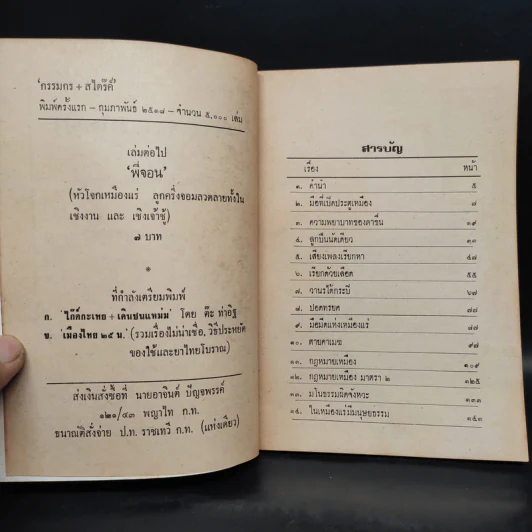 'กรรมกร + สไตร๊ค์'
พิมพ์ครั้งแรก – กุมภาพันธ์ ๒๕๑๘ – จำนวน ๕,๐๐๐ เล่ม
เล่มต่อไป
'พี่จอน'
(หัวโจกเหมืองแร่ ลูกครึ่งจอมลวดลายทั้งใน
เชิงงาน และ เชิงเจ้าชู้)
๗ บาท
*
ที่กำลังเตรียมพิมพ์
ก. 'ไก๊ด์กะเทย + เดินชนแหม่ม' โดย ต๊ะ ท่าอิฐ
ข. 'เมืองไทย ๒๕ น.' (รวมเรื่องไม่น่าเชื่อ, วิธีประหยัด
ของใช้และยาไทยโบราณ)
ส่งเงินสั่งซื้อที่ นายอาจินต์ ปัญจพรรค์
๑๒๑/๔๓ พญาไท ก.ท.
ธนาณัติสั่งจ่าย ป.ท. ราชเทวี ก.ท. (แห่งเดียว)
สารบัญ
เรื่อง หน้า
๑. คำนำ ๕
๒. มือที่เปิดประตูเหมือง ๗
๓. ความพยาบาทของตาขึ้น ๑๙
๔. ลูกปืนนัดเดียว ๓๓
๕. เสียงเพลงเรียกหา ๔๗
๖. เรียกด้วยเลือด ๕๕
๗. วานรได้กระบี่ ๖๗
๘. ปอดทรยศ ๗๗
๙. มือมืดแห่งเหมืองแร่ ๘๗
๑๐. ตายคาเมฆ ๙๗
๑๑. กฎหมายเหมือง ๑๐๙
๑๒. กฎหมายเหมือง มาตรา ๒ ๑๒๕
๑๓. มโนธรรมผิดจังหวะ ๑๓๓
๑๔. ในเหมืองแร่มีมนุษยธรรม ๑๔๓